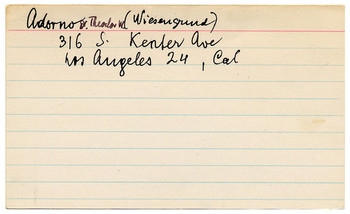 Adorno Dr. Theodor W. (Wiesengrund)
316 S. Kenter Ave
Los Angeles 24, Cal